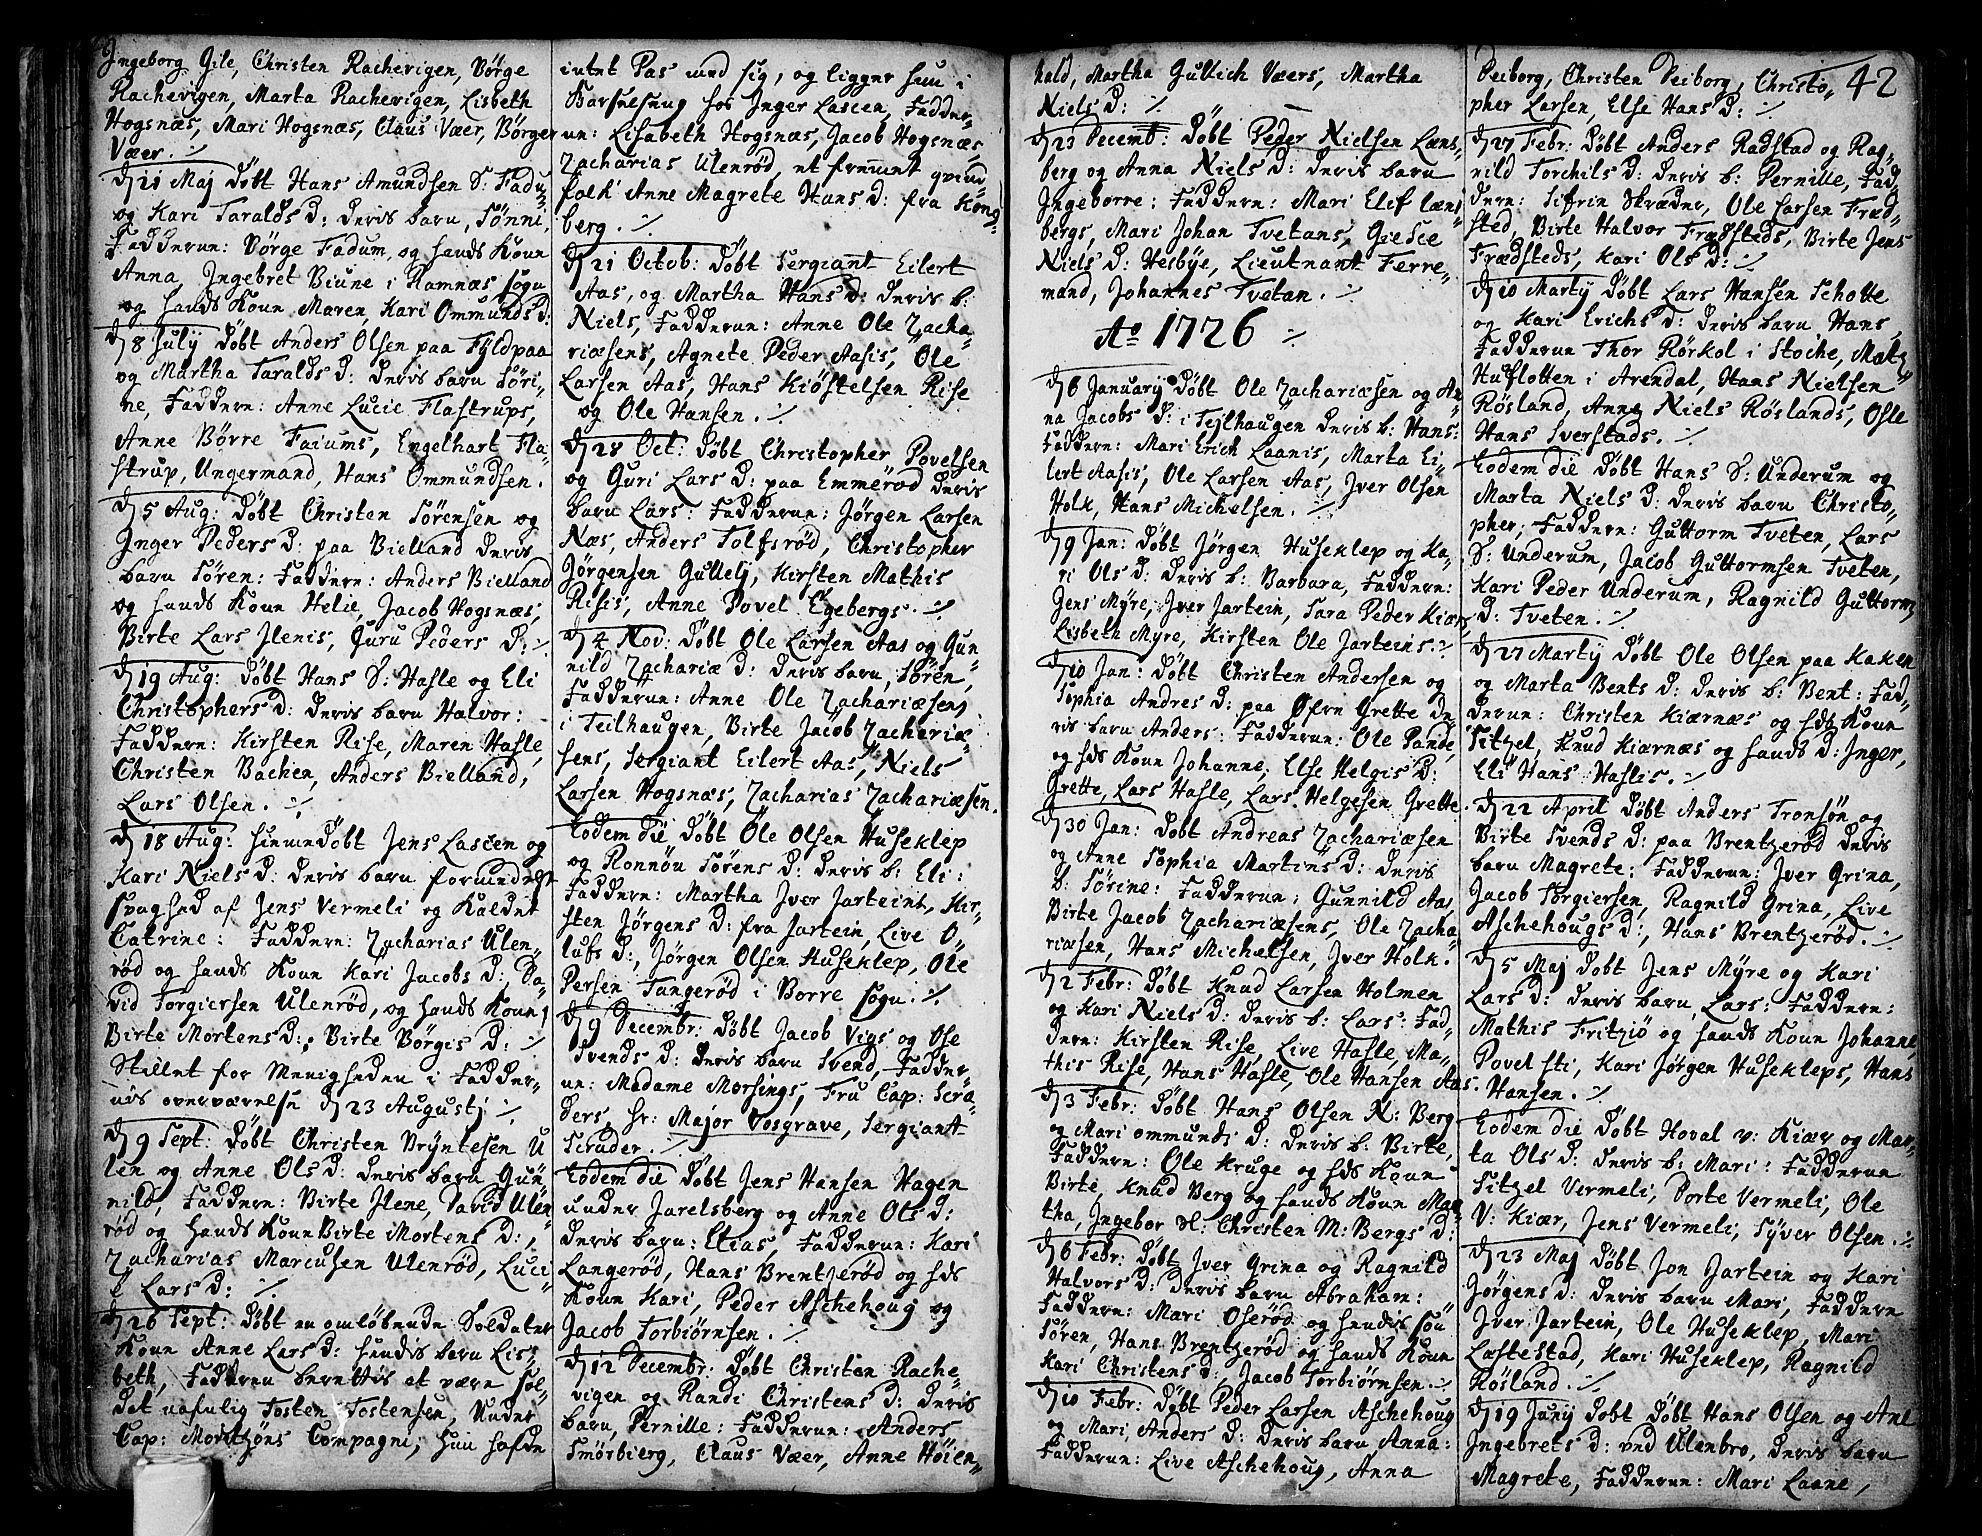 Ingeborg Gile, Christen Rachevigen, Børge
Rachevigen, Marta Rachevigen, Lisbeth
Hogsnæs, Mari Hogsnæs, Claus Væer, Børger
Væer. ./.
d 21 Maj Døbt Hans Amundsen S: Fadu-
og Kari Taralds D: deris barn, Tønni,
Fadderne: Børge Fadum, og hands Kone
Anna, Ingebret Biune i Ramnæs sogn
og hands Kone Maren, Kari Ommunds D:
d 8 July Døbt Anders Olsen paa Fyldpaa
og Martha Taralds D: deris barn Søri-
ne, Faddern: Anne Lucie Flastrups,
Anne Børre Faiums, Engelhart Fla-
strup, Ungermand, Hans Ommundsen.
d 5 Aug: Døbt Christen Sørensen og
Inger Peders D: paa Bielland deris
barn Søren: Faddern: Anders Bielland
og hands Kone Helie, Jacob Hogsnæs,
Birte Lars Ilenis, Guru Peders D: ./.
d 19 Aug: Døbt Hans S: Hasle og Eli
Christophers D: deris barn Halvor:
Faddern: Kirsten Rise, Maren Hasle,
Christen Bachen, Anders Bielland,
Lars Olsen. ./.
d 18 Aug: hiemedøbt Jens Lascen og
Kari Niels D: deris barn formedelst
svaghed af Jens Vermeli og Kaldet
Catrine: Faddern: Zacharias Ulen-
rød og hands Kone Kari Jacobs D: Da-
vid Torgiersen Ulenrød, og hands Kone
Birte Mortens D:, Birte Børgis D: ./.
Stillet for Menigheden i Fadder-
nis overværelse d 23 Augustj ./.
d 9 Sept: Døbt Christen Bryntesen U-
len og Anne Ols D: deris barn Gun-
nild, Faddern: Birte Ilene, David Ulen-
rød og hands Kone Birte Mortens D:,
Zacharias Marcusen Ulenrød, Luci-
e Lars D: ./.
d 26 Sept: Døbt en omløbende Soldater
Kone Anne Lars D: hendis barn Lis-
beth, Fadderen berettis at være Sol-
dat nafnlig Tosten Tostensen, under
Cap: Moritzøns Compagni, hun hafde
intet Pas med sig, og ligger hun i
Barselseng hos Inger Lascen, Fadder-
ne: Lisabeth Hogsnæs, Jacob Hogsnæs,
Zacharias Ulenrød, et fremmet qvind-
folk Anne Magrete Hans D: fra Kong-
berg. ./.
d 21 Octob: Døbt Sergiant Eilert
Aas, og Martha Hans D: deris b:
Niels, Fadderne: Anne Ole Zacha-
riæsens, Agnete Peder Aasis, Ole
Larsen Aas, Hans Kiøstelsen Rise
og Ole Hansen. ./.
d 28 Oct: Døbt Christopher Povelsen
og Guri Lars D: paa Emmerød deris
barn Lars: Fadderne: Jørgen Larsen
Næs, Anders Tolfsrød, Christopher
Jørgensen Gullelj, Kirsten Mathis
Risis, Anne Povel Egebergs. ./.
d 4 Nov: Døbt Ole Larsen Aas og Gun-
nild Zachariæ D: deris barn, Søren,
Fadderne: Anne Ole Zachariæsens
i Teilhaugen, Birte Jacob Zachariæ-
sens, Sergiant Eilert Aas, Niels
Larsen Hogsnæs, Zacharias Zachariæsen.
Eodem die Døbt Ole Olsen Huseklep
og Ronnou Sørens D: deris b: Eli:
Faddern: Martha Iver Jarteins, Kir-
sten Jørgens D: fra Jartein, Live O-
lufs D:, Jørgen Olsen Huseklep, Ole
Persen Tangerød i Borre sogn. ./.
d 9 Decembr: Døbt Jacob Vigs og Ose
Svends D: deris barn Svend, Fadder
ne: Madame Morsings, Fru Cap: Scra-
ders, hr: Major Vosgrave, Sergiant
Scruder. ./.
Eodem die Døbt Jens Hansen Hagen
under Jarelsberg og Anne Ols D:
deris barn: Elias, Fadderne: Kari
Langerød, Hans Brentzerød og hds
Kone Kari, Peder Aschehoug og
Jacob Torbiørnsen. ./.
d 12 Decembr: Døbt Christen Rache-
vigen og Randi Christens D: deris
barn, Pernille: Fadderne: Anders
Smørbierg, Claus Væer, Anne Høien-
hald, Martha Gullich Væers, Martha
Niels D: ./.
d 23 Decemb: Døbt Peder Nielsen Læns-
berg og Anna Niels D: deris barn
Ingeborre: Faddern: Mari Elif læns-
bergs, Mari Johan Tvetans, Giesie
Niels D: Hesbye, Lieutnant Ferre-
mand, Johannes Tvetan. ./.
Ao 1726 ./.
d 6 January Døbt Ole Zachariæsen og An-
na Jacobs D: i Tejlhaugen deris b: Hans:
Faddern: Mari Erich Laanis, Marta Ei-
lert Aasis, Ole Larsen Aas, Iver Olsen
Holk, Hans Michelsen. ./.
d 9 Jan: Døbt Jørgen Huseklep og Ka-
ri Ols D: deris b: Barbara, Faddern:
Jens Myre, Iver Jartein, Sara Peder Kiær,
Lisbeth Myre, Kirsten Ole Jarteins. ./.
d 10 Jan: Døbt Christen Andersen og
Sophia Andres D: paa Øfre Grette de-
ris barn Anders: Fadderne: Ole Pande,
og hds Kone Johanne, Else Helgis D:
Grette, Lars Hasle, Lars Helgesen Grette.
d 30 Jan: Døbt Andreas Zachariæsen
og Anne Sophia Martins D: deris
b: Sørine: Fadderne: Gunnild Aas,
Birte Jacob Zachariæsens, Ole Zacha-
riæsen, Hans Michelsen, Iver Holk.
d 2 Febr: Døbt Knud Larsen Holmen
og Kari Niels D: deris b: Lars: Fad-
dern: Kirsten Rise, Live Hasle, Ma-
this Rise, Hans Hasle, Ole Hansen Aas.
d 3 Febr: Døbt Hans Olsen N: Berg
og Mari ommunds D: deris b: Birte,
Faddern: Ole Kruge og hds Kone
Birte, Knud Berg og hands Kone Mar-
tha, Ingebor sl: Christen M: Bergs D:
d 6 Febr: Døbt Iver Grina og Ragnild
Halvors D: deris barn Abraham:
Faddern: Mari Oserød og hendis søn
Søren, Hans Brentzerød og hands Kone
Kari Christens D:, Jacob Torbiørnsen. ./.
d 10 Febr: Døbt Peder Larsen Aschehoug
og Mari Anders D: deris barn Anna:
Fadderne: Live Aschehoug, Anna
42
Veiborg, Christen Veiborg, Christo-
pher Larsen, Else Hans D: ./.
d 27 Febr: Døbt Anders Radstad og Rag-
nild Torchils D: deris b: Pernille, Fad-
dern: Sifrin Skræder, Ole Larsen Fræd-
sted, Birte Halvor Frædsteds, Birte Jens
Frædsteds, Kari Ols D: ./.
d 10 Martij Døbt Lars Hansen Scholte
og Kari Erichs D: deris barn Hans
Fadderne Thor Rørkol i Stoche, Matz
Huflotten i Arendal, Hans Nielsen
Røsland, Anne Niels Røslands, Osle
Hans Sverstads. ./.
Eodem die Døbt Hans S: Underum og
Marta Niels D: deris barn Christo-
pher; Faddern: Guttorm Tveten, Lars
S: Underum, Jacob Guttormsen Tveten,
Kari Peder Underum, Ragnild Guttorms
D: Tveten. ./.
d 27 Martij Døbt Ole Olsen paa Kaken
og Marta Bents D: deris b: Bent: Fad-
derne: Christen Kiærnæs og hds Kone
Sitzel, Knud Kiærnæs og hands D: Inger,
Eli Hans Haslis. ./.
d 22 April Døbt Anders Tronsøn og
Birte Svends D: paa Brentzerød deris
barn Magrete: Fadderne: Iver Grina,
Jacob Torgiersen, Ragnild Grina, Live
Aschehougs D:, Hans Brentzerød. ./.
d 5 Maj Døbt Jens Myre og Kari
Lars D: deris barn, Lars: Faddern:
Mathis Fritziø og hands Kone Johanne,
Povel sti, Kari Jørgen Huseleps, Hans
Hansen. ./.
Eodem die Døbt Hoval v: Kiær og Mar-
ta Ols D: deris b: Mari: Fadderne
Sitzel Vermeli, Dorte Vermeli, Ole
V: Kiær, Jens Vermeli, Syver Olsen. ./.
d 23 Maj Døbt Jon Jartein og Kari
Jørgens D: deris barn Mari, Faddern
Iver Jartein, Ole Huseklep, Mari
Læstestad, Kari Huseklep, Ragnild
Røsland. ./.
d 19 Juny Døbt Døbt Hans Olsen og Ane
Ingebrets D: ved Ulenbro, deris barn
Magrete, Fadderne: Mari Laane,